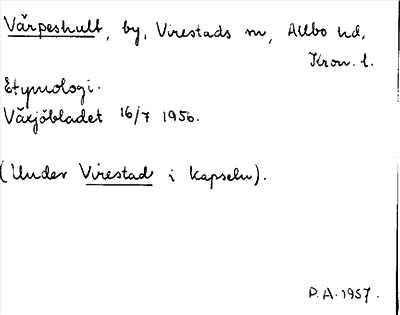 Värpeshult, by, Virestads sn, Allbo hd,
Kron. l.
Etymologi.
Växjöbladet 16/7 1956.
(Under Virestad i kapseln).
P.A. 1957.